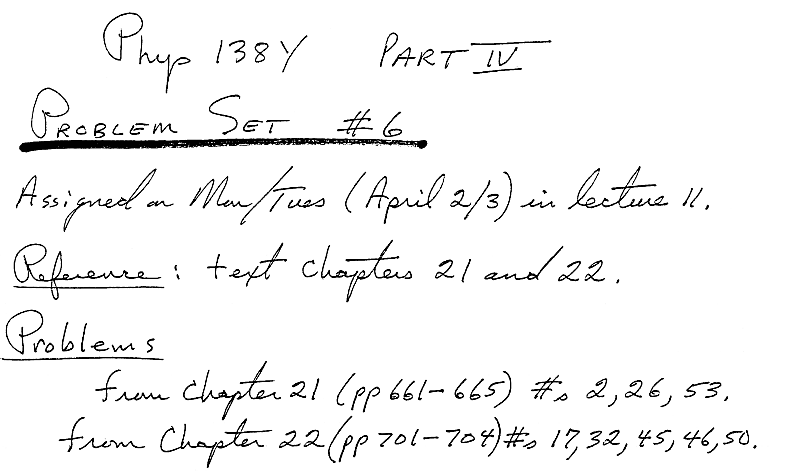 Phys 138Y PART IV
PROBLEM SET #6
Assigned on Mon/Tues (April 2/3) in lecture 11.
Reference: text chapters 21 and 22.
Problems
from Chapter 21 (pp 661-665) #s 2, 26, 53.
from Chapter 22 (pp 701-704) #s 17, 32, 45, 46, 50.